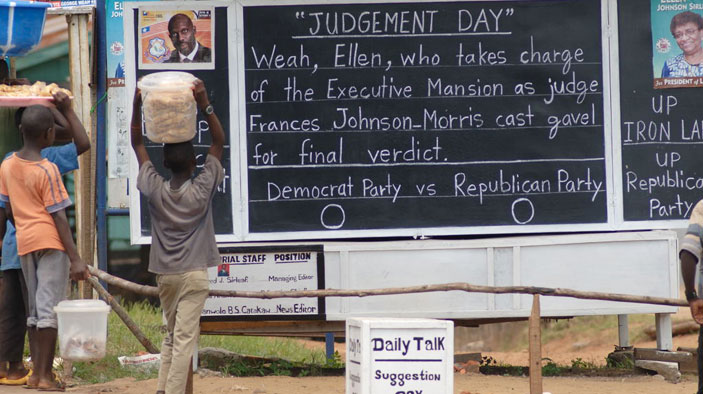 "JUDGEMENT DAY"
Weah, Ellen, who takes charge
of the Executive Mansion as judge
Frances Johnson-Morris cast gavel
for final verdict.
Democrat Party vs Republican Party
JOHNSON SIRL
UP
IRON LA
UP
Republica
Party
RIAL STAFF POSITION
Managing Editor
B.S. Catakaw News Editor
Daily Talk
Suggestion